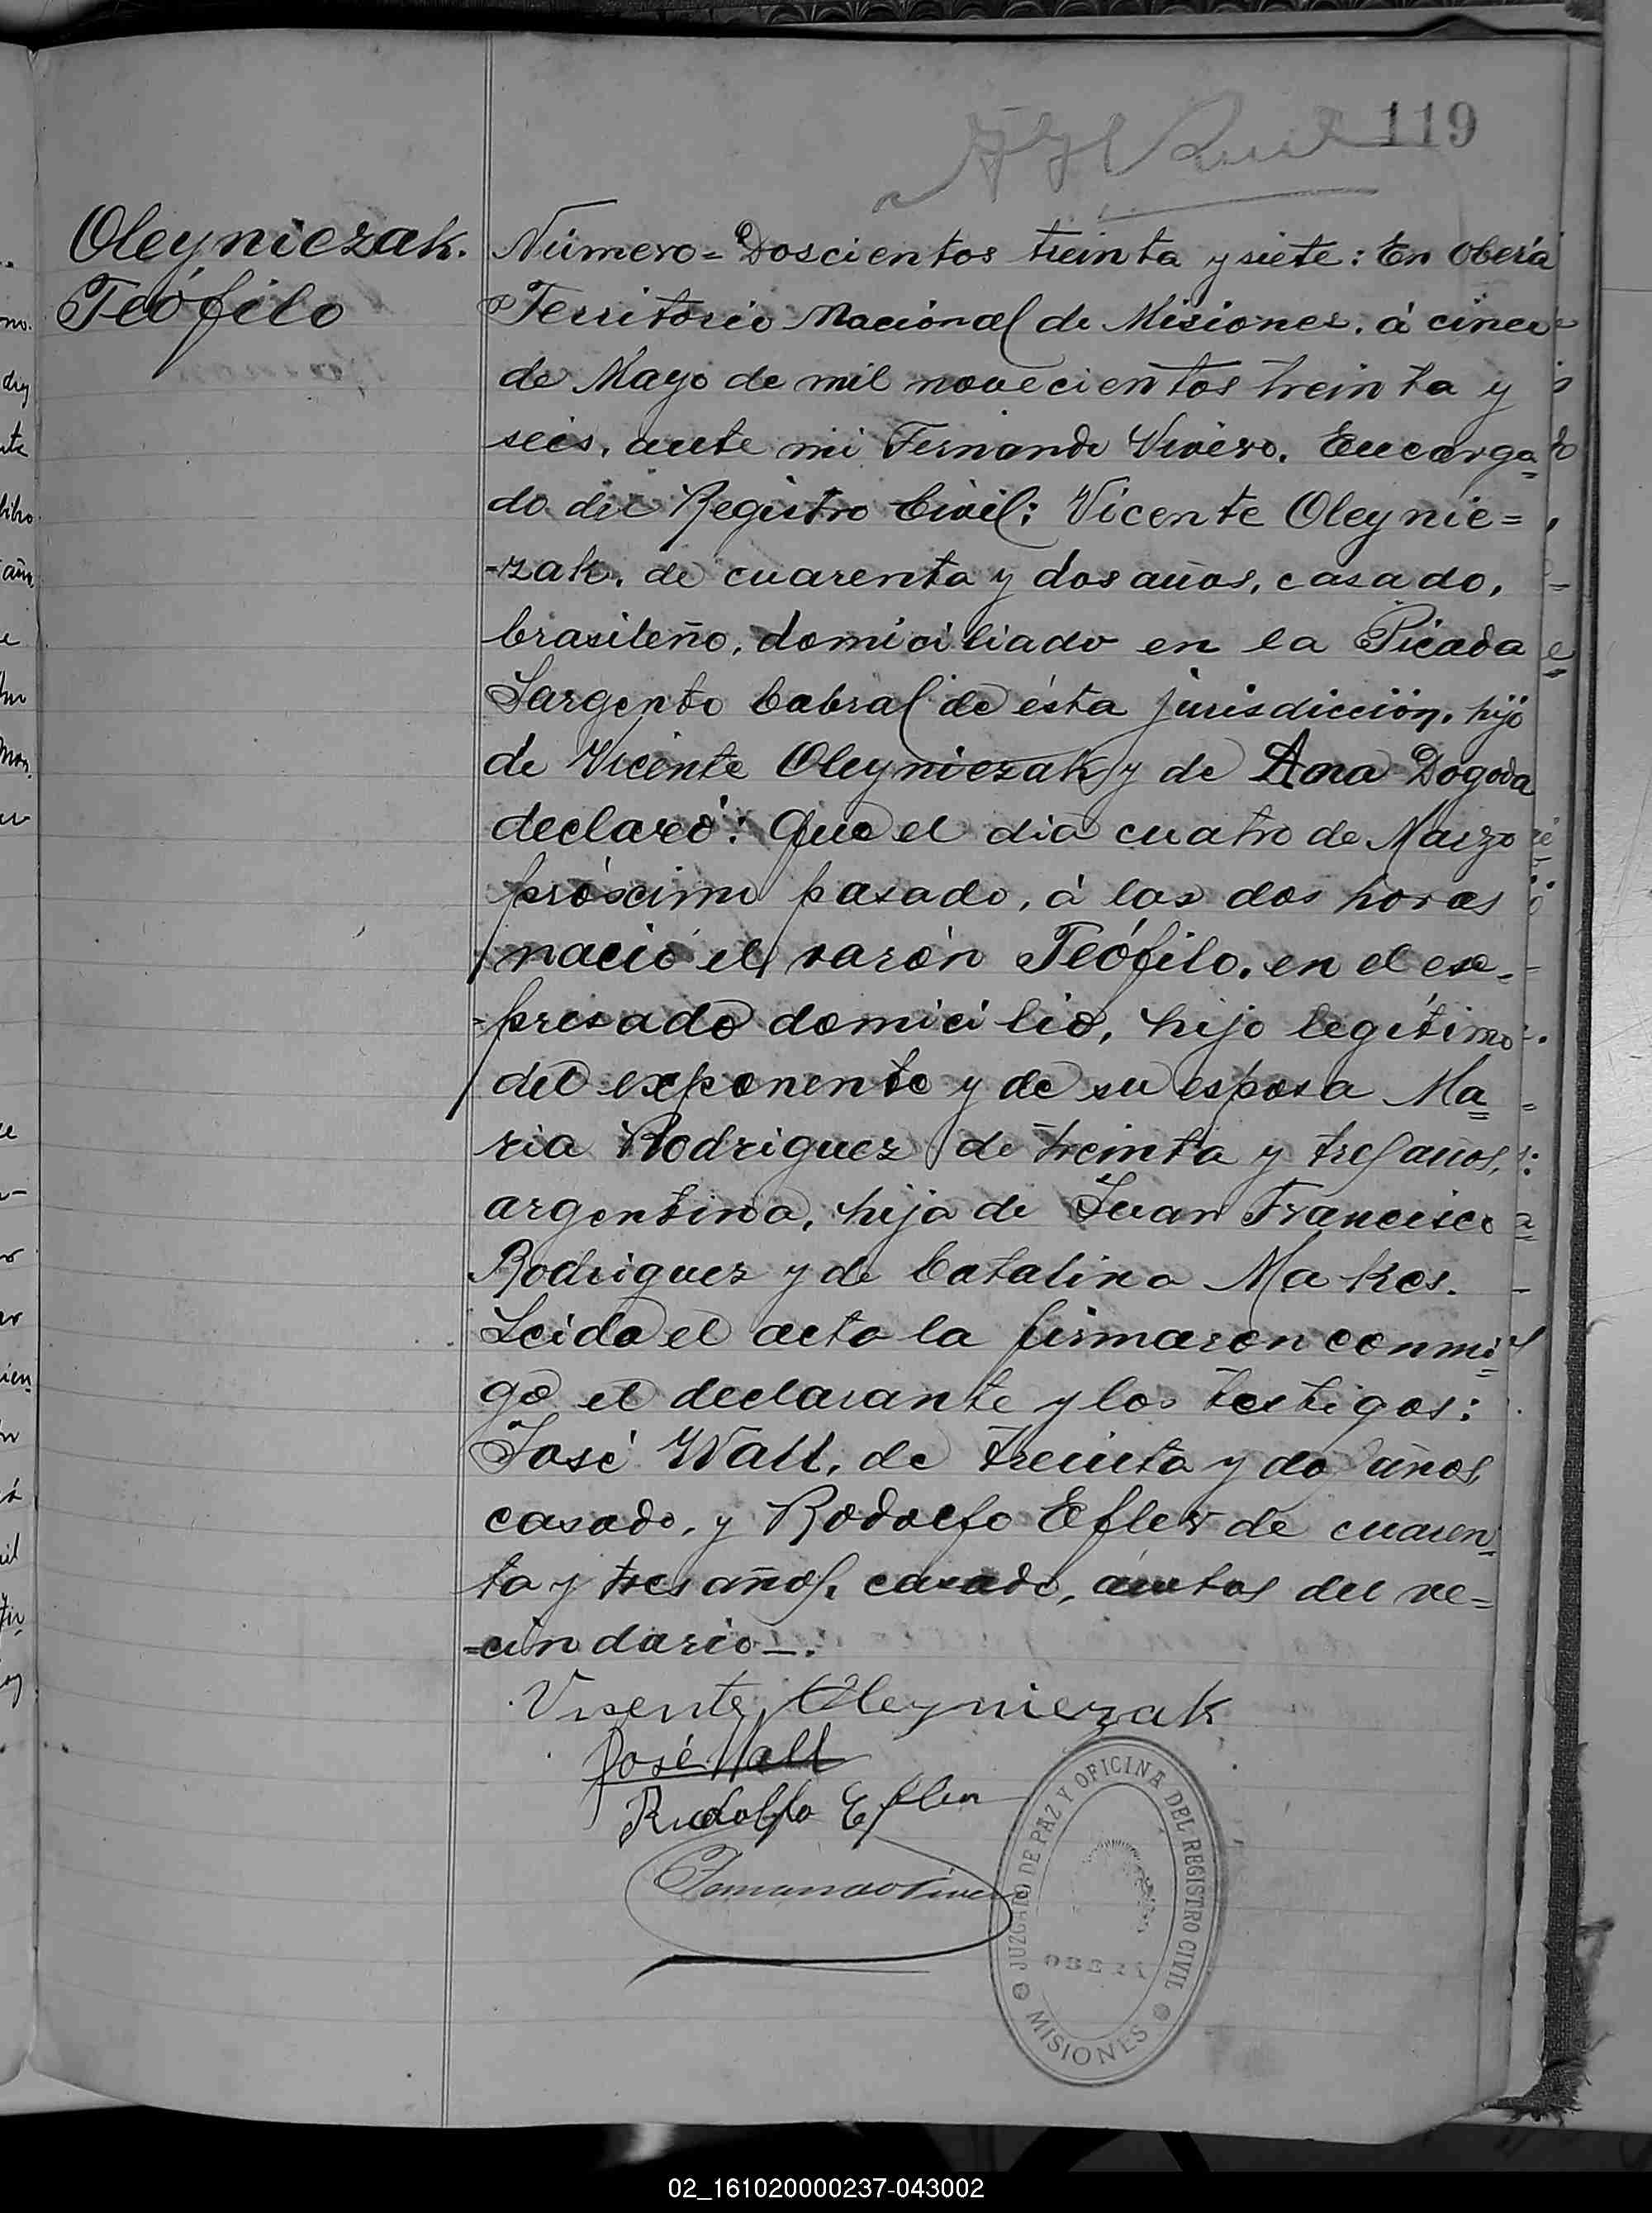 119
Oleyniezak.
Teófilo
Número = Doscientos treinta y siete: En Oberá
Territorio Nacional de Misiones, á cinco
de Mayo de mil novecientos treinta y
seis, ante mi Fernando Vivero, Encarga=
do del Registro Civil: Vicente Oleynie=
=zak, de cuarenta y dos años, casado,
brasileño, domiciliado en la Picada
Sargento Cabral de ésta jurisdicción, hijo
de Vicente Oleyniezak y de Ana Dogoda
declaró: Que el dia cuatro de Marzo
próximo pasado, á las dos horas
nació el varón Teófilo, en el ex=
=presado domicilio, hijo legítimo
del exponente y de su esposa Ma=
ria Rodriguez de treinta y tres años,
argentina, hija de Juan Francisco
Rodriguez y de Catalina Makes.
Leida el acta la firmaron conmi=
go el declarante y los testigos:
José Wall, de treinta y dos años,
casado, y Rodolfo Efler de cuaren=
ta y tres años, casado, ámbos del ve=
=cindario_.
Visente Oleyniezak
José Wall
Rudolfo Efler
Fernando Vivero
JUZGADO DE PAZ Y OFICINA DEL REGISTRO CIVIL
OBERA
MISIONES
02_161020000237-043002